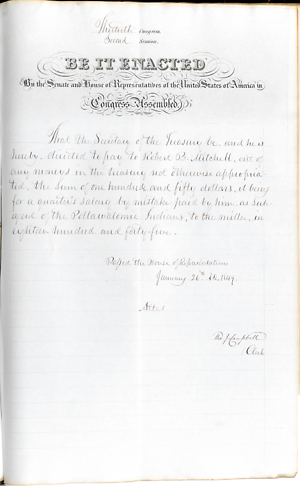 Thirtieth Congress,
Second Session.
BE IT ENACTED
By the Senate and House of Representatives of the United States of America in
Congress Assembled
That the Secretary of the Treasury be, and he is
hereby, directed to pay to Robert B. Mitchell, out of
any moneys in the treasury not otherwise appropria-
ted, the sum of one hundred and fifty dollars, it being
for a quarter's salary by mistake paid by him as sub-
agent of the Pottawatomie Indians, to the miller, in
eighteen hundred and forty-five.
Passed the House of Representatives
January 26th 1849.
Attest
Campbell
Clerk